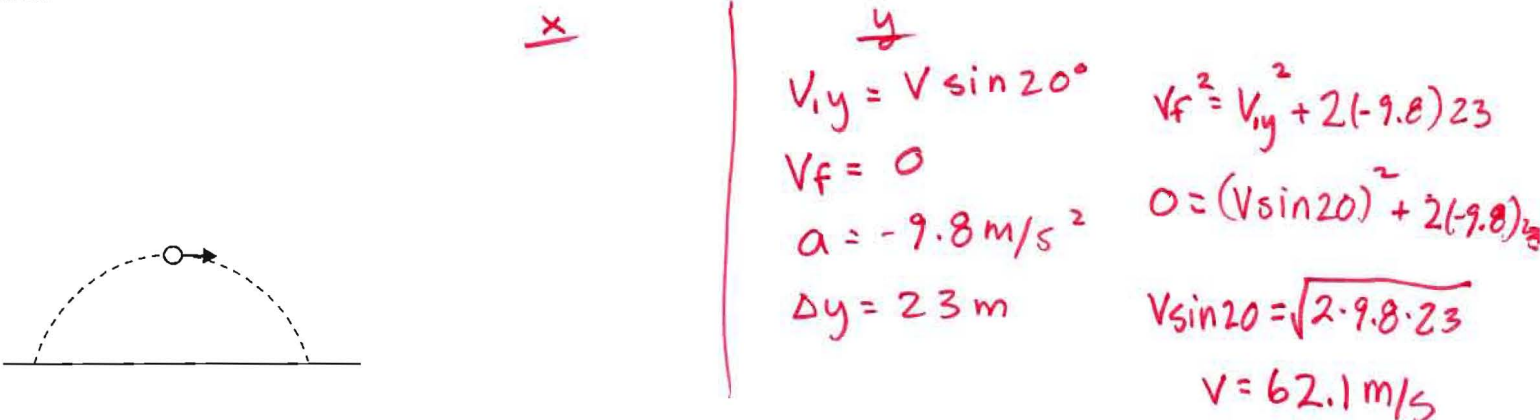 x
y
V₁y = V sin 20°
Vf = 0
a = -9.8 m/s²
Δy = 23 m
Vf² = V₁y² + 2(-9.8)23
0 = (Vsin20)² + 2(-9.8)23
Vsin20 = √2·9.8·23
V = 62.1 m/s